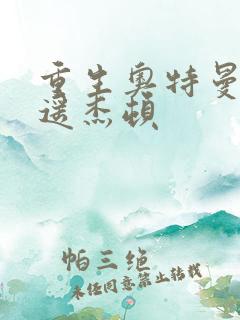 重生奥特曼
遥杰顿
帕三绝
未经同意禁止转载